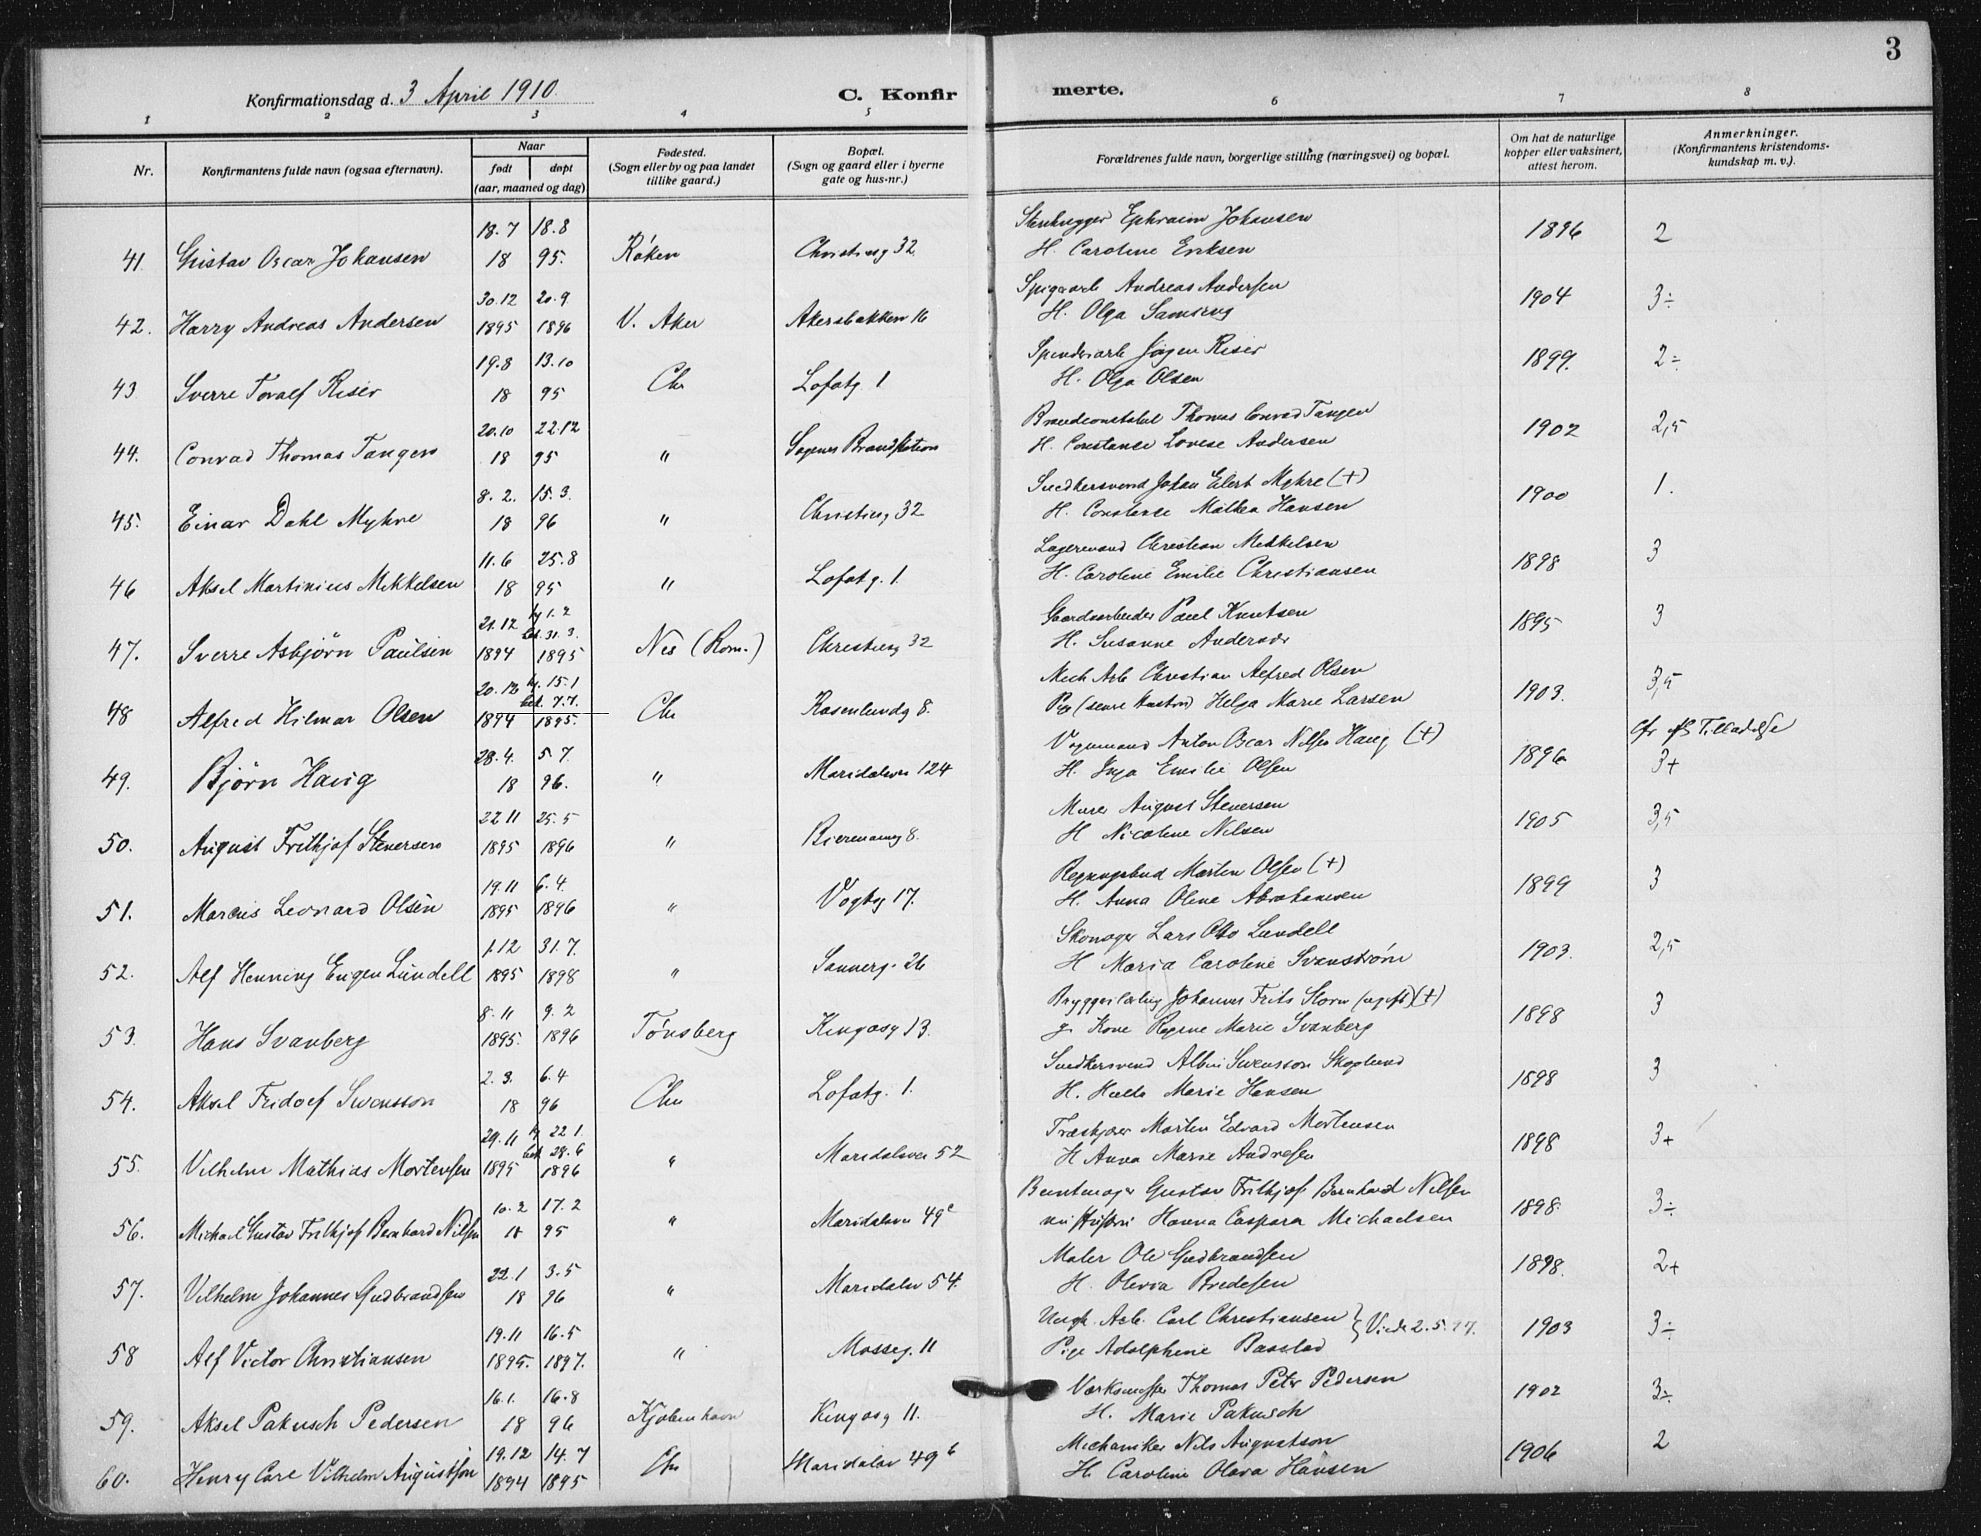 3
Konfirmationsdag d. 3 April 1910.
C. Konfir merte.
1 2 3 4 5 6 7 8
Nr. Konfirmantens fulde navn (ogsaa efternavn). Naar født døpt (aar, maaned og dag) Fødested. (Sogn eller by og paa landet tillike gaard.) Bopæl. (Sogn og gaard eller i byerne gate og hus-nr.) Forældrenes fulde navn, borgerlige stilling (næringsvei) og bopæl. Om hat de naturlige kopper eller vaksinert, attest herom. Anmerkninger. (Konfirmantens kristendomskundskap m. v.).
18.7 18.8 Stenhugger Ephraim Johansen
41. Gustav Oscar Johansen 18 95. Røken Christiesg 32 H. Caroline Eriksen 1896 2
30.12 20.9 Andreas Andersen
42. Harry Andreas Andersen 1895 1896 V. Aker Akersbakken 16 H. Olga 1904 3÷
19.8 13.10 Jørgen Riser
43 Sverre Toralf Riser 18 95 Chr Lofotg. 1 H. Olga Olsen 1899. 2÷
20.10 22.12 Brandconstabel Thomas Conrad Tangen
44. Conrad Thomas Tangen 18 95 " Sagenes Brandstation H. Constance Lovise Andersen 1902 2,5
8.2. 15.3. Snedkersvend Johan Elert Myhre (+)
45. Einar Dahl Myhre 18 96 " Christiesg 32 H. Constanse Mathea Hansen 1900 1.
11.6 25.8 Lagermand Christian Mikkelsen
46 Aksel Martinius Mikkelsen 18 95 " Lofotg. 1. H. Caroline Emilie Christiansen 1898 3
21.12 hj 1.2 bek. 31.3. Gaardsarbeider Paul Knutsen
47. Sverre Asbjørn Paulsen 1894 1895 Nes (Rom.) Christiesg 32 H. Susanne 1895 3
20.12 hj. 15.1 bek. 7.7. Mech Arb Christian Alfred Olsen
48 Alfred Hilmar Olsen 1894 1895. Chr Rosenlundg 8. Pige (senere Hustru) Helga Marie Larsen 1903. 3,5
28.4. 5.7. Vognmand Anton Oscar Nilsen Haug (+) Tilladelse
49. Bjørn Haug 18 96. " Maridalsvei 124 H. Inga Emilie Olsen 1896 3+
22.11 25.5 Murer August Stenersen
50. August Frithjof Stenersen 1895 1896 " 8. H Nicoline Nilsen 1905 3,5
19.11 6.4. Morten Olsen (+)
51. Marius Leonard Olsen 1895 1896 " Vogtsg 17. H. Anna Oline Abrahamsen 1899 3
1.12 31.7. Skomager Lars Otto Lundell
52. Alf Henning Eugen Lundell 1895 1898 " Sannerg. 26 H Maria Caroline Svanstrøm 1903. 2,5
8.11 9.2 Johannes Frits Storm (ugift) (+)
53. Hans Svanberg 1895. 1896 Tønsberg Kingosg 13. g. Kone Marie Svanberg 1898 3
2.3. 6.4 Snedkersvend Albin Swensson Skoglund
54. Aksel Fridolf Swensson 18 96 Chr Lofotg. 1. H. Hulda Marie Hansen 1898 3
29.11 hj 22.1. bek 28.6 Træskjærer Martin Edvard Mortensen
55. Vilhelm Mathias Mortensen 1895 1896 " Maridalsvei 52 H Anna Marie Andresen 1898 3+
10.2 17.2 Buntmager Gustav Frithjof Bernhard Nilsen
56. Michael Gustav Frithjof Bernhard Nilsen 18 95 " Maridalsvei 49c Hanna Caspara Michaelsen 1898 3÷
22.1 3.5 Maler Ole Gudbrandsen
57. Vilhelm Johannes Gudbrandsen 18 96 " Maridalsv 54. H. Olevia Bredesen 1898. 2+
19.11 16.5 Ungk. Arb. Carl Christiansen } Viede 2.5.97.
58 Alf Victor Christiansen 1895. 1897. " Mosseg. 11 Pige Adolphine Baastad 1903 3÷
16.1. 16.8 Værksmester Thomas Peter Pedersen
59. Aksel Pakusch Pedersen 18 96 Kjøbenhavn Kingosg 11. H. Marie Pakusch 1902 3÷
19.12 14.7 Mechaniker Nils Augustson
60. Henry Carl Vilhelm Augustson 1894 1895 Chr Maridalsv 49b H. Caroline Olava Hansen 1906 2